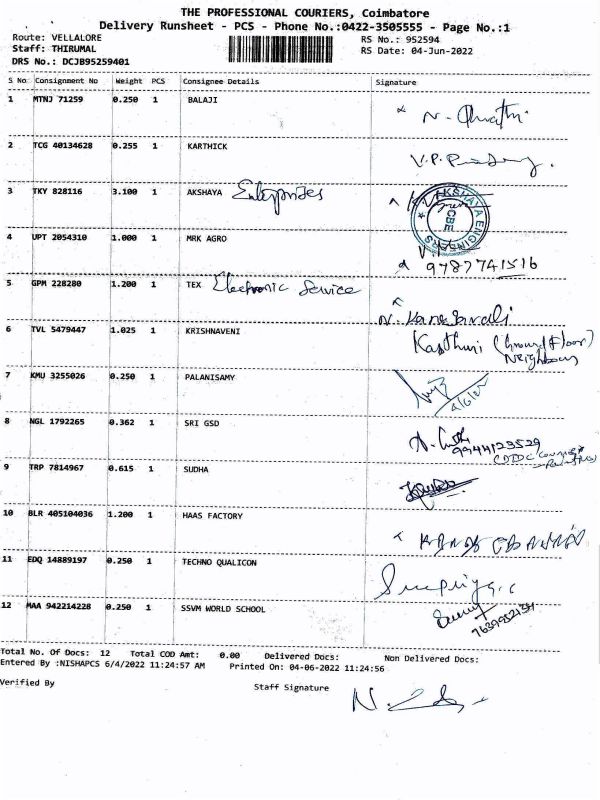 THE PROFESSIONAL COURIERS, Coimbatore
Delivery Runsheet - PCS - Phone No.:0422-3505555 - Page No.:1
Route: VELLALORE RS No.: 952594
Staff: THIRUMAL RS Date: 04-Jun-2022
DRS No.: DCJB95259401
S No Consignment No Weight PCS Consignee Details Signature
1 MTNJ 71259 0.250 1 BALAJI
2 TCG 40134628 0.255 1 KARTHICK
3 TKY 828116 3.100 1 AKSHAYA Enterprises
AKSHAYA ENGINEERS CBE
4 UPT 2054310 1.000 1 MRK AGRO
9787741516
5 GPM 228280 1.200 1 TEX Electronic Service
6 TVL 5479447 1.025 1 KRISHNAVENI
Kasthuri (Ground Floor)
Neighbour
7 KMU 3255026 0.250 1 PALANISAMY
4/6/22
8 NGL 1792265 0.362 1 SRI GSD
9944123529
9 TRP 7814967 0.615 1 SUDHA
10 BLR 405104036 1.200 1 HAAS FACTORY
11 EDQ 14889197 0.250 1 TECHNO QUALICON
12 MAA 942214228 0.250 1 SSVM WORLD SCHOOL
Total No. Of Docs: 12 Total COD Amt: 0.00 Delivered Docs: Non Delivered Docs:
Entered By :NISHAPCS 6/4/2022 11:24:57 AM Printed On: 04-06-2022 11:24:56
Verified By Staff Signature